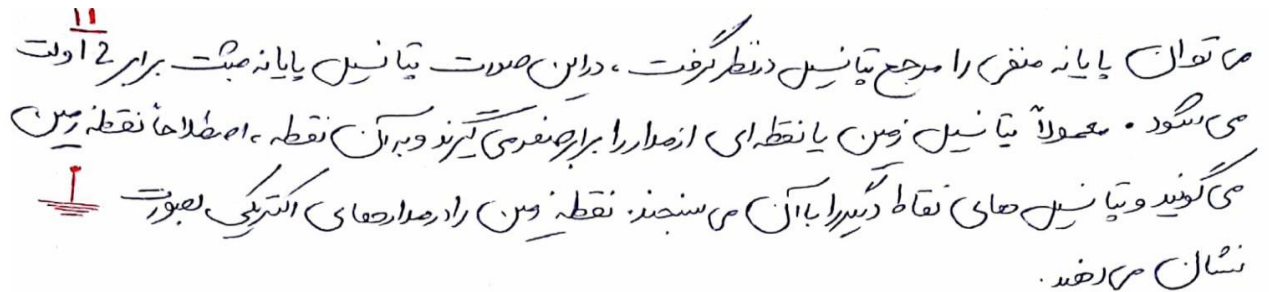 ۱۱
می توان پایانه منفی را مرجع پتانسیل در نظر گرفت ، در این صورت پتانسیل پایانه مثبت برابر 12 ولت
می شود . معمولاً پتانسیل زمین یا نقطه ای از مدار را برابر صفر می گیرند و به آن نقطه ، اصطلاحاً نقطه زمین
می گویند و پتانسیل های نقاط دیگر را با آن می سنجند . نقطه زمین را در مدارهای الکتریکی بصورت
نشان می دهند .